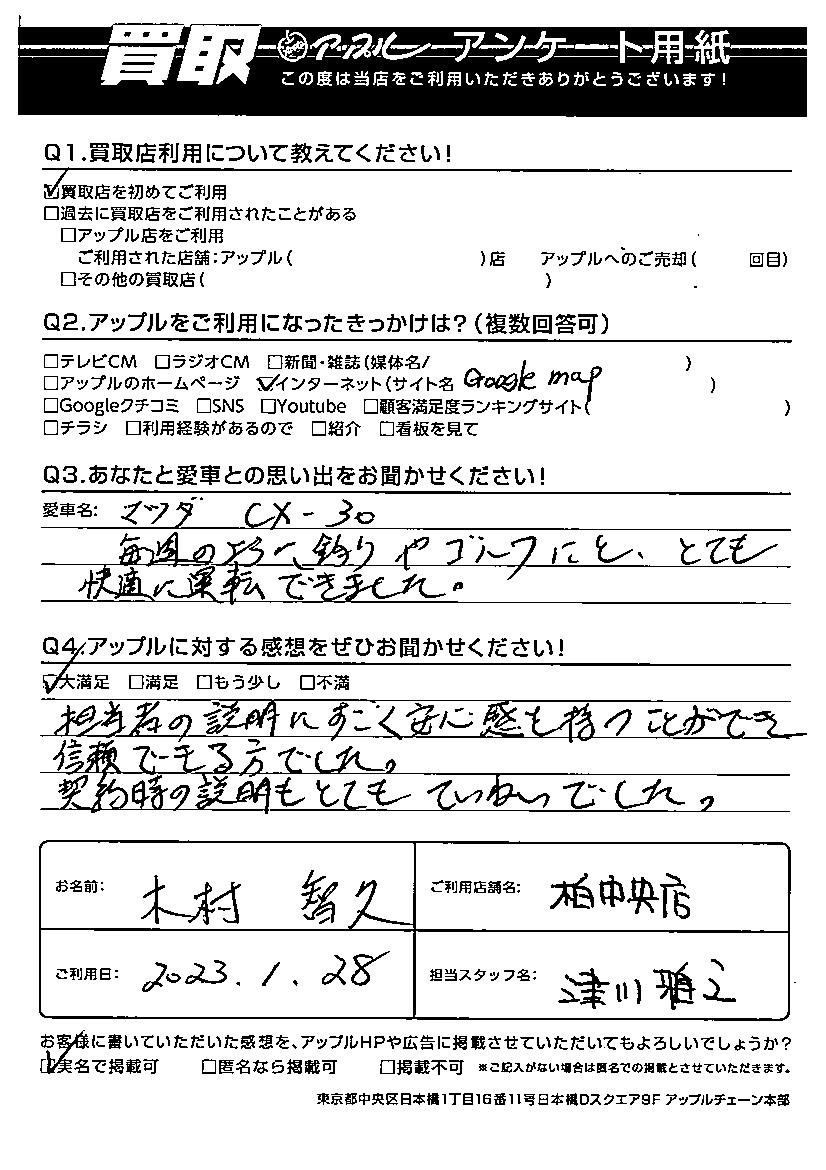 買取 アップル アンケート用紙
この度は当店をご利用いただきありがとうございます!
Q1.買取店利用について教えてください!
☑買取店を初めてご利用
□過去に買取店をご利用されたことがある
□アップル店をご利用
ご利用された店舗:アップル( )店 アップルへのご売却( 回目)
□その他の買取店( )
Q2.アップルをご利用になったきっかけは?(複数回答可)
□テレビCM □ラジオCM □新聞・雑誌(媒体名/ )
□アップルのホームページ ☑インターネット(サイト名 Google map )
□Googleクチコミ □SNS □Youtube □顧客満足度ランキングサイト( )
□チラシ □利用経験があるので □紹介 □看板を見て
Q3.あなたと愛車との思い出をお聞かせください!
愛車名: マツダ CX-30
毎週のように釣りやゴルフにと、とても
快適に運転できました。
Q4.アップルに対する感想をぜひお聞かせください!
☑大満足 □満足 □もう少し □不満
担当者の説明にすごく安心感を持つことができ
信頼できる方でした。
契約時の説明もとてもていねいでした。
お名前: 木村 智久 ご利用店舗名: 柏中央店
ご利用日: 2023.1.28 担当スタッフ名: 津川 雅之
お客様に書いていただいた感想を、アップルHPや広告に掲載させていただいてもよろしいでしょうか?
☑実名で掲載可 □匿名なら掲載可 □掲載不可 ※ご記入がない場合は匿名での掲載とさせていただきます。
東京都中央区日本橋1丁目16番11号日本橋Dスクエア9F アップルチェーン本部